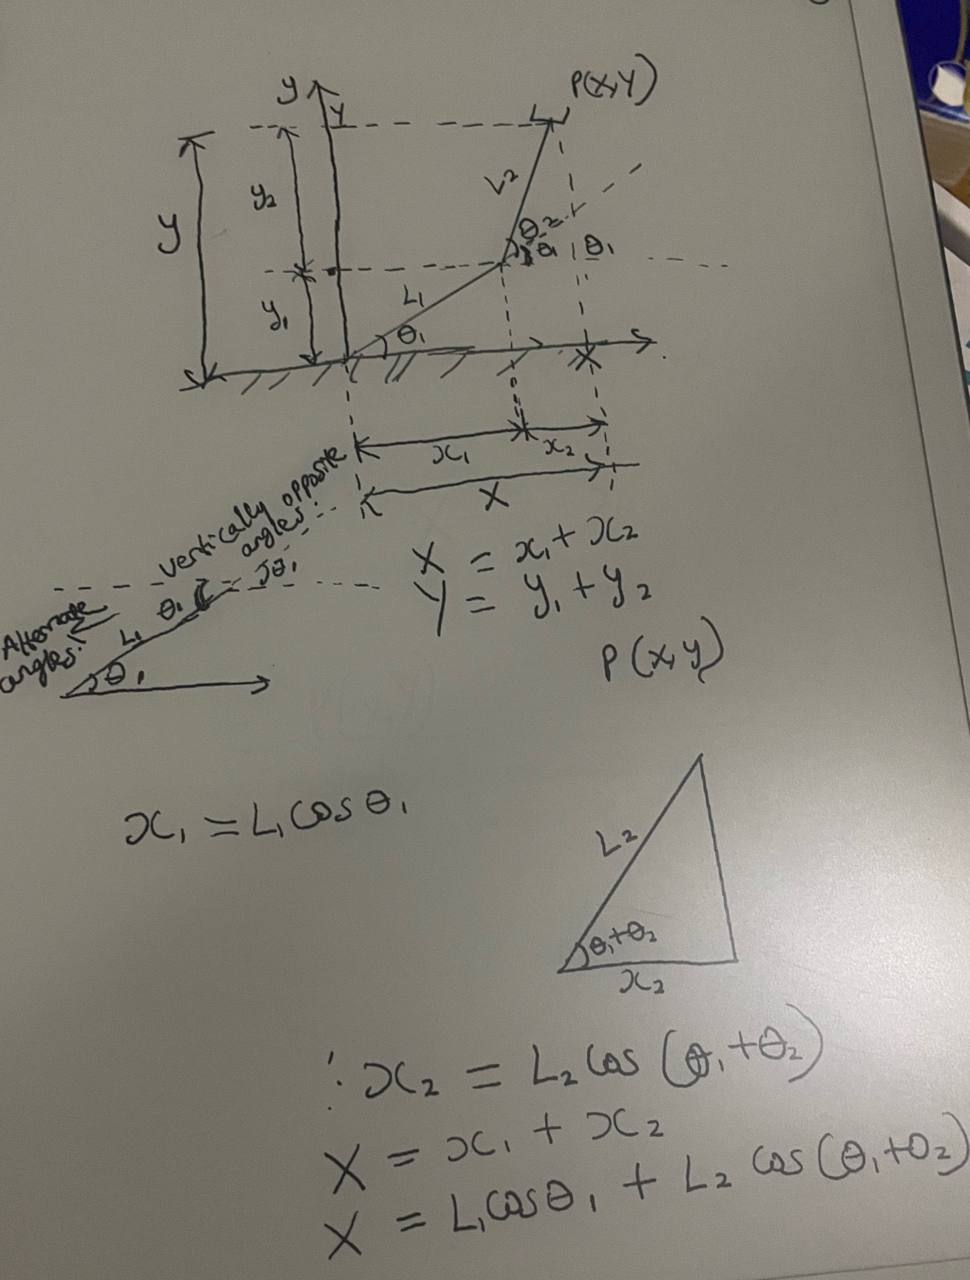 y
Y
P(X,Y)
y₂
L2
Y
θ₂
θ₁
θ₁
y₁
L₁
θ₁
X
x₁
x₂
X
vertically opposite
angles!
θ₁
θ₁
Alternate
angles!
L₁
θ₁
X = x₁ + x₂
Y = y₁ + y₂
P(x,y)
x₁ = L₁ cos θ₁
L₂
θ₁+θ₂
x₂
∴ x₂ = L₂ cos (θ₁+θ₂)
X = x₁ + x₂
X = L₁cosθ₁ + L₂ cos (θ₁+θ₂)